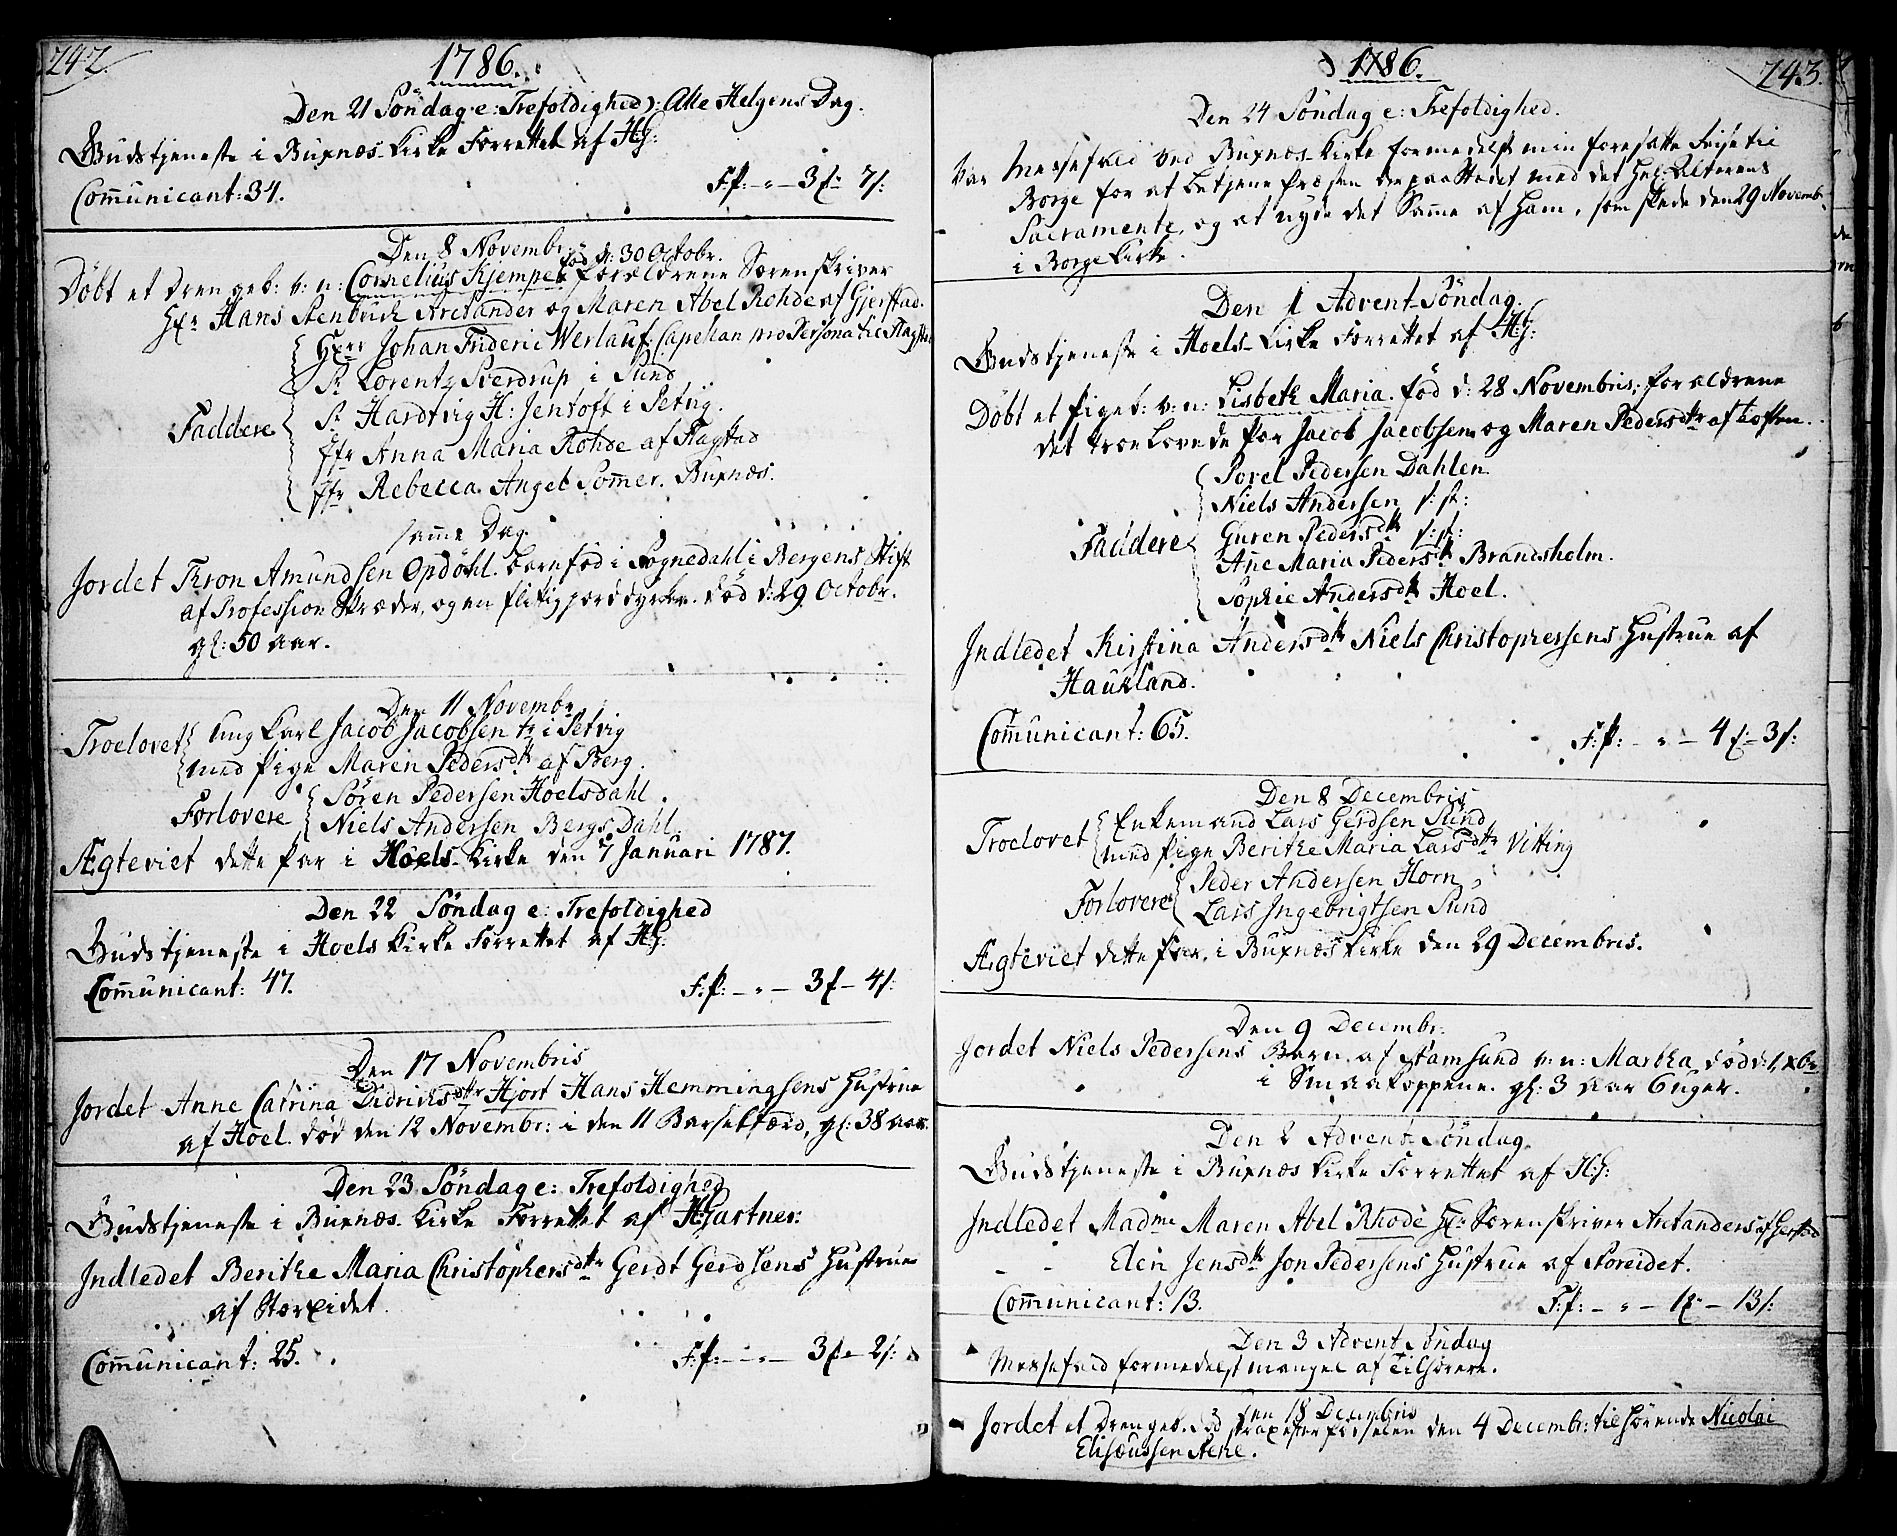 242.
1786.
Den 21 Söndag e: Trefoldighed: Alle Helgens Dag.
Gudstjeneste i Buxnæs Kirke Forrettet af H:G:
Communicant: 34. F:P: - " - 3 f: 7 s:
Den 8 Novembr:
föd d: 30 Octobr.
Döbt et Drengeb: v: n: Cornelius Kjempe forældrene Sorenskriver
Hr Hans Steenbuch Arctander og Maren Abel Rohde af Gjerstad.
Herr Johan Frideric Werlauf Capellan pro Persona til
Sr Lorentz Sverdrup i Sund
Faddere Sr Hardtvig H: Jentoft i Petvig.
Jfr Anna Maria Rohde af Flagstad
Jfr Rebecca Angel Sommer. Buxnæs.
samme Dag.
Jordet Thron Amundsen Opdöhl. barnföd i Sognedahl i Bergens Stift
af Profession Skræder, og en flitig jorddyrker. död d: 29 Octobr.
gl: 50 aar.
Den 11 Novembr.
Troelovet ung karl Jacob Jacobsen i Petvig
med Pige Maren Pedersdtr af Berg.
Forlovere Sören Pedersen Hoelsdahl.
Niels Andersen Bergs Dahl.
Ægteviet dette par i Hoels Kirke den 7 Januari 1787.
Den 22 Söndag e: Trefoldighed
Gudstjeneste i Hoels Kirke Forrettet af H:G:
Communicant: 47. F:P: - " - 3 f - 4 s:
Den 17 Novembris
Jordet Anne Catrina Didrichsdtr Hjort Hans Hemmingsens Hustrue
af Hoel. död den 12 Novembr: i den 11 Barselfærd, gl: 38 aar.
Den 23 Söndag e: Trefoldighed
Gudstjeneste i Buxnæs Kirke Forrettet af HGartner:
Indledet Berithe Maria Christophersdtr Gerdt Gerdsens Hustrue
af Storeidet.
Communicant: 25. F:P: - " - 3 f - 2 s:
1786.
243.
Den 24 Söndag e: Trefoldighed.
Var Messefald ved Buxnæs Kirke formedelst min foresatte Reise til
Borge for at betjene Præsten paa Stædet med det Hel: Alterens
Sacramente, og at nyde det Samme af Ham, som skede den 29 Novembr.
i Borge Kirke.
Den 1 Advent Söndag.
Gudstjeneste i Hoels Kirke Forrettet af H:G:
Döbt et Pigeb: v: n: Lisbeth Maria. föd d: 28 Novembris, forældrene
det troelovede Par Jacob Jacobsen og Maren Pedersdtr af
Povel Pedersen Dahlen
Niels Andersen
Faddere Guren Pedersdtr
Ane Maria Pedersdtr Brandsholm.
Sophie Andersdtr Hoel.
Indledet Kirstina Andersdtr Niels Christophersens Hustrue af
Haukland.
Communicant: 65. F:P: - " - 4 f: - 3 s:
Den 8 Decembris
Troelovet Enkemand Lars Gerdsen Sund
med Pige Berithe Maria Larsdtr Vitting
Forlovere Peder Andersen Horn
Lars Ingebrigtsen Sund
Ægteviet dette Par. i Buxnæs Kirke den 29 Decembris.
Den 9 Decembr:
Jordet Niels Pedersens Barn af Stamsund v: n: Martha död d: 1 Xbr
i Smaakoppene. gl: 3 aar 6 uger.
Den 2 Advent Söndag
Gudstjeneste i Buxnæs Kirke Forrettet af H:G:
Indledet Madme Maren Abel Rhode Hr: Sorenskriver Arctanders af Gerstad
- - Elen Jensdtr Jon Pedersens Hustrue af Storeidet.
Communicant: 13. F:P: - " - 1 f - 13 s:
Den 3 Advent Söndag
Messefald formedelst mangel af Tilhörere.
Den 18 Decembris
Jordet et Drengeb. död strax efter födselen den 4 Decembr: tilhörende Nicolai
Elisæussen